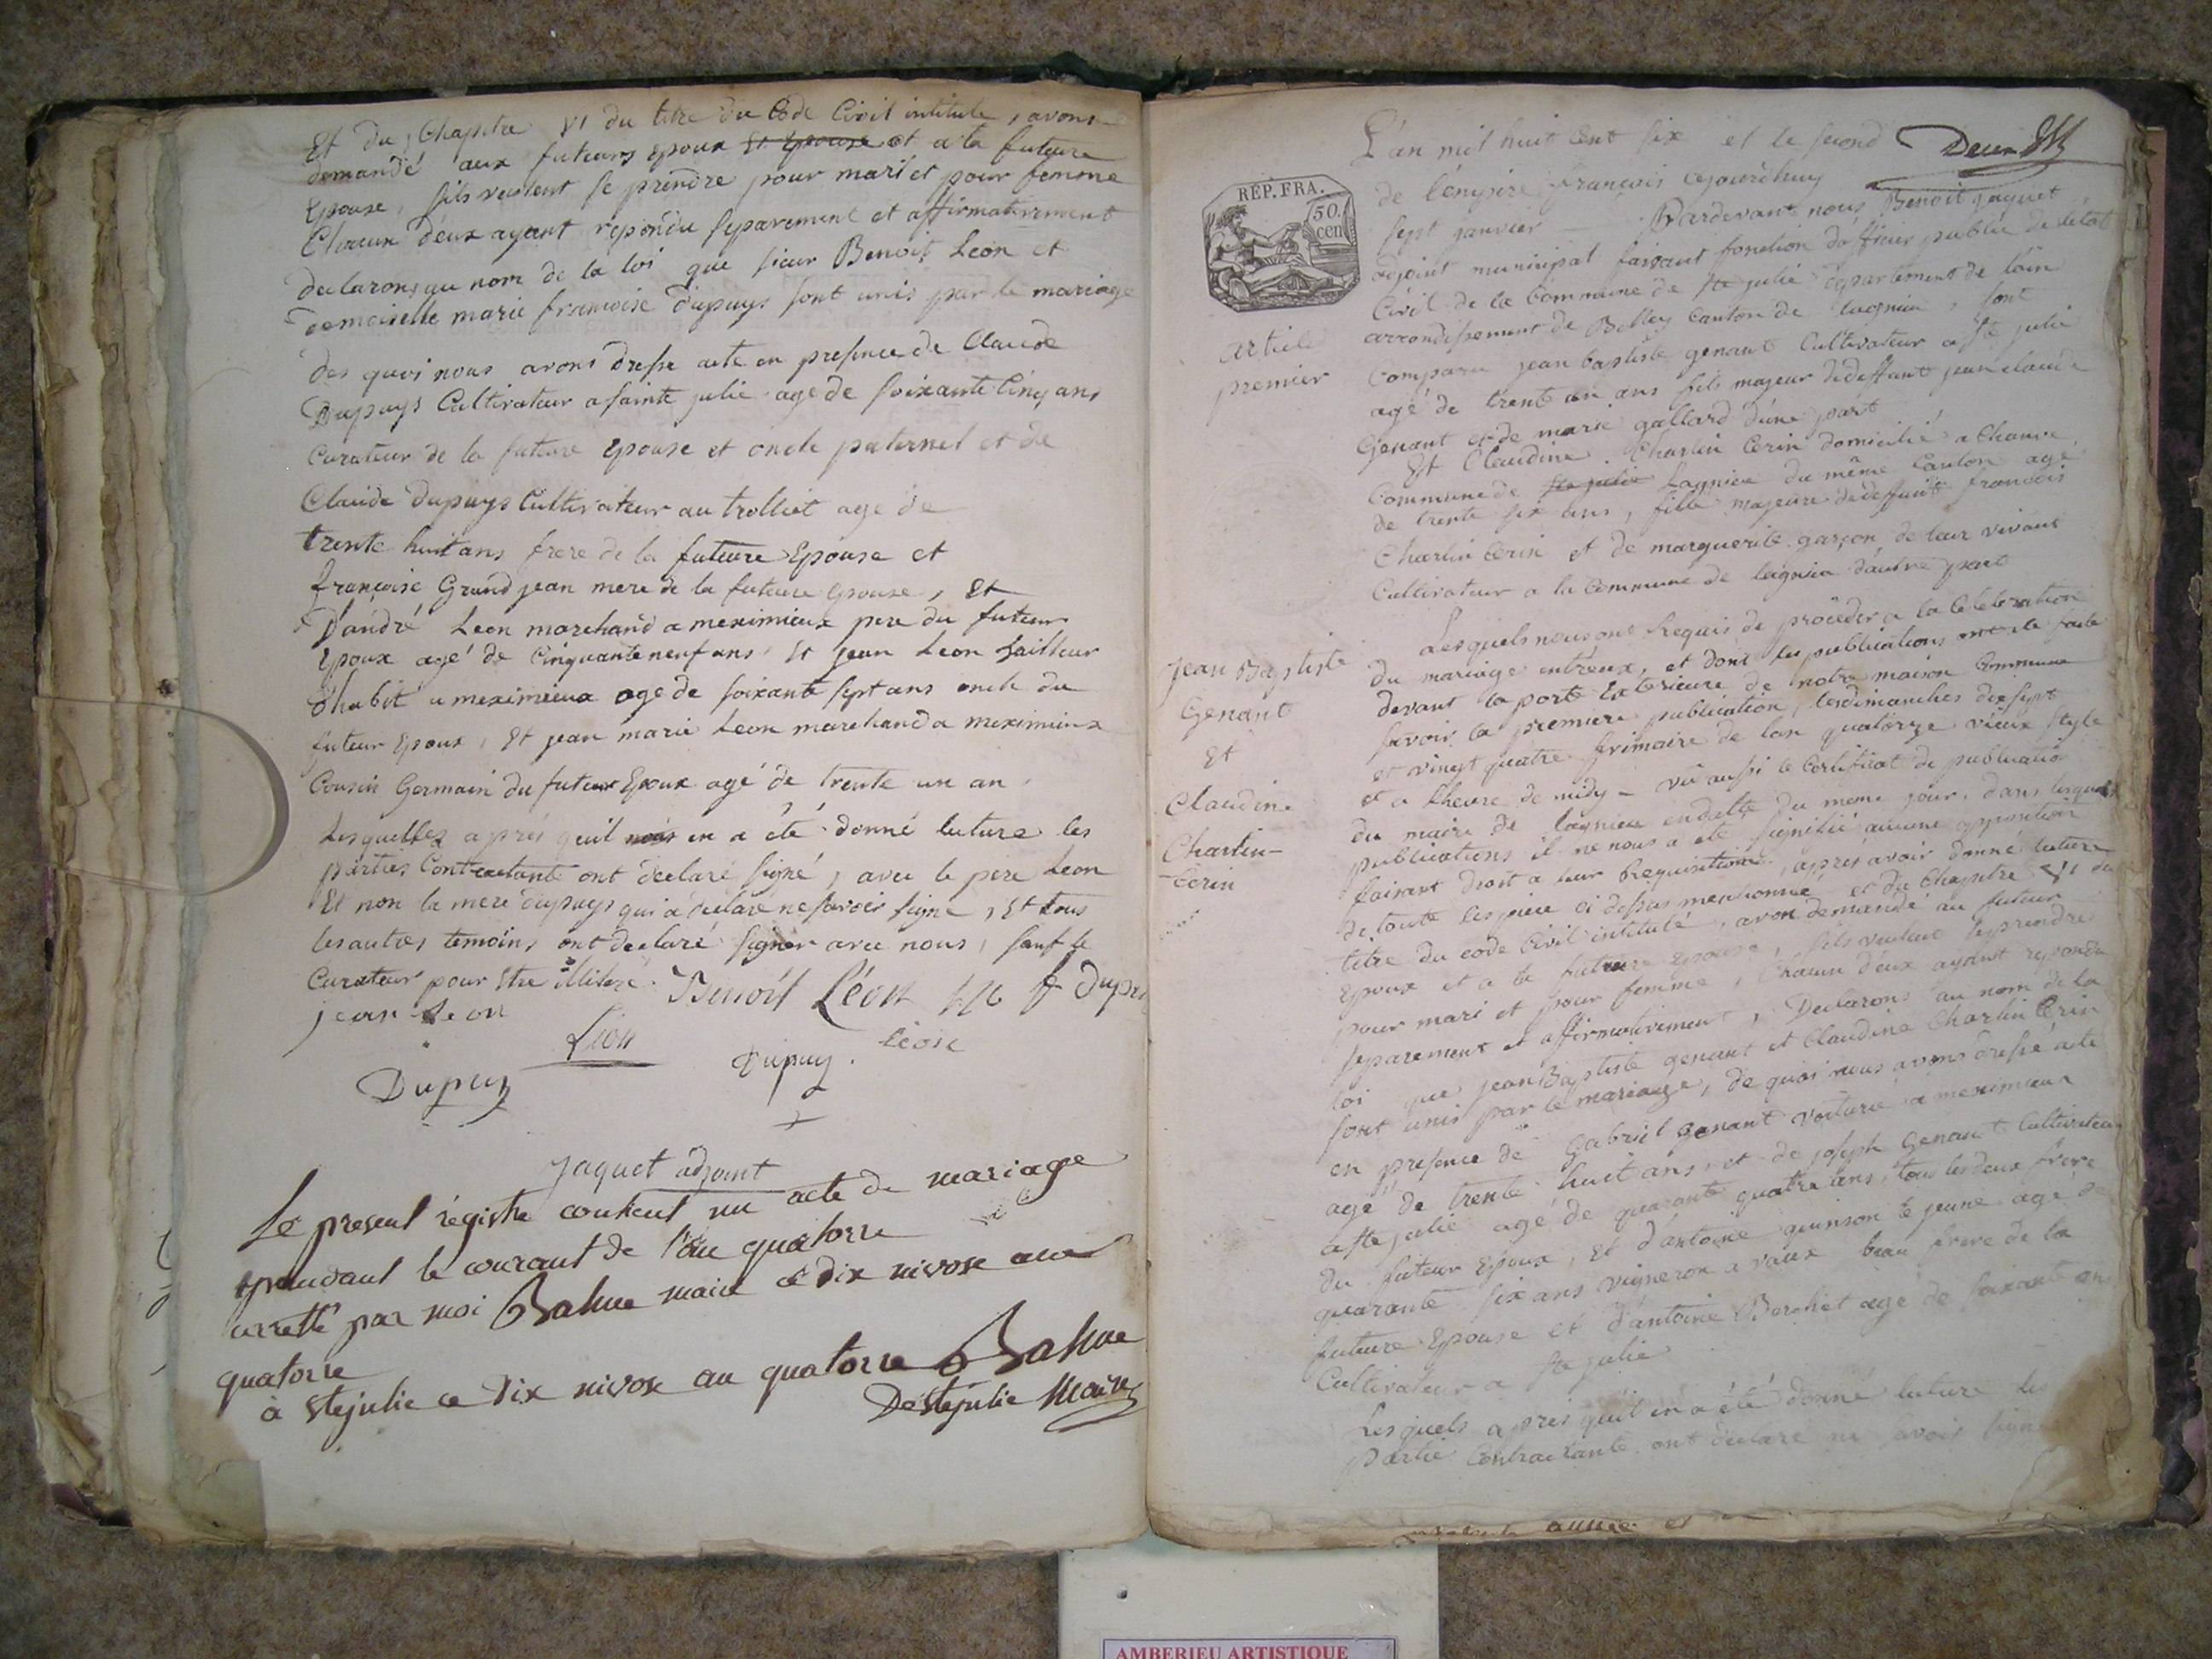 Et du Chapitre VI du titre du Code Civil intitule, avons
demandé aux futeurs epoux et Epouse et a la future
Epouse, sils veulent se prendre pour mari et pour femme
Chacun deux ayant repondu separement et affirmativement
declarons au nom de la loi que sieur Benoit Leon et
demoiselle marie francoise dupuys sont unis par le mariage
des quoi nous avons dressé acte en presence de Claude
Dupuys Cultivateur a sainte julie age de soixante Cinq ans
Curateur de la future epouse et oncle paternel et de
Claude dupuys Cultivateur au trolliet age de
trente huit ans frere de la future Epouse et
françoise Grand jean mere de la future Epouse, et
D'andré Leon marchand a meximieux pere du futeur
Epoux agé de Cinquante neuf ans et jean Leon tailleur
d'habit a meximieux age de soixante sept ans oncle du
futeur Epoux, et jean marie Leon marchand a meximieux
Cousin Germain du futeur Epoux agé de trente un an
Lesquelles aprés quil en a été donné luture les
parties Contractante ont declaré signé, avec le pere Leon
Et non la mere dupuys qui a declare ne savoir signe, Et tous
les autres temoins ont declaré signer avec nous, sauf le
Curateur pour Etre illitere. Benoit Léon
jean Leon
Léon Dupuy Léon
Dupuy
Jaquet adjoint
Le present régistre contient un acte de mariage
pendant le courant de l'an quatorze
arretté par moi Bahue maire ce dix nivose an
quatorze
à Ste julie ce dix nivose an quatorze Bahue
De Ste julie Maire
L'an mil huit Cent six et le second
de l'empire français cejourdhuy
REP. FRA.
50. cen
sept janvier Pardevant nous Benoit jaquet
adjoint municipal faisant fonction dofficier public de l'état
Civil de la Commune de ste julie département de lain
arrondissement de Belley Canton de lagnieu, sont
article
premier
Comparu jean baptiste genant Cultivateur a ste julie
agé de trente un ans fils majeur de deffunt jean claude
Genant et de marie gallard dune part
Et Claudine Charlin Cerin domicilié a Chanve
Commune de ste julie Lagnieu du même Canton age
de trente six ans, fille majeure de deffunt francois
Charlin Cerin et de marguerite garçon de leur vivant
Cultivateur a la Commune de lagnieu d'autre part
Jean Baptiste
Genant
Et
Claudine
Charlin
Cerin
Lesquels nous ont Requis de procéder a la Celebration
du mariage entreux, et dont les publications ont ete faite
devant la porte Exterieure de notre maison Commune
savoir la premiere publication, les dimanches dix sept
et vingt quatre frimaire de lan quatorze vieux style
et a lheure de midy - vû aussi le Certificat de publication
du maire de lagnieu en datte du meme jour, dans lesquels
publications il ne nous a été signifié aucune opposition
faisant droit a leur Requisitione, aprés avoir donné luture
de toute les piece ci dessus mentionné et du Chapitre VI du
titre du code Civil intitulé, avon demandé au futeur
Epoux et a la future epouse, sils veulent se prendre
pour mari et pour femme, Chacun deux ayant repondu
separement et affirmativement, Declarons au nom de la
loi que jean Baptiste genant et Claudine Charlin Cerin
sont unis par le mariage, de quoi nous avons dressé acte
en presence de Gabriel Genant voiturié a meximieux
agé de trente huit ans et de joseph Genant Cultivateur
a ste julie agé de quarante quatre ans, tous les deux frere
du futeur Epoux, et d'antoine quinson le jeune agé de
quarante six ans vigneron a vaux beau frere de la
future Epouse et d'antoine Berchet agé de soixante ans
Cultivateur a ste julie
Lesquels aprés quil en a été donné luture les
partie Contractante ont declare ne savoir signe
année et
AMBERIEU ARTISTIQUE